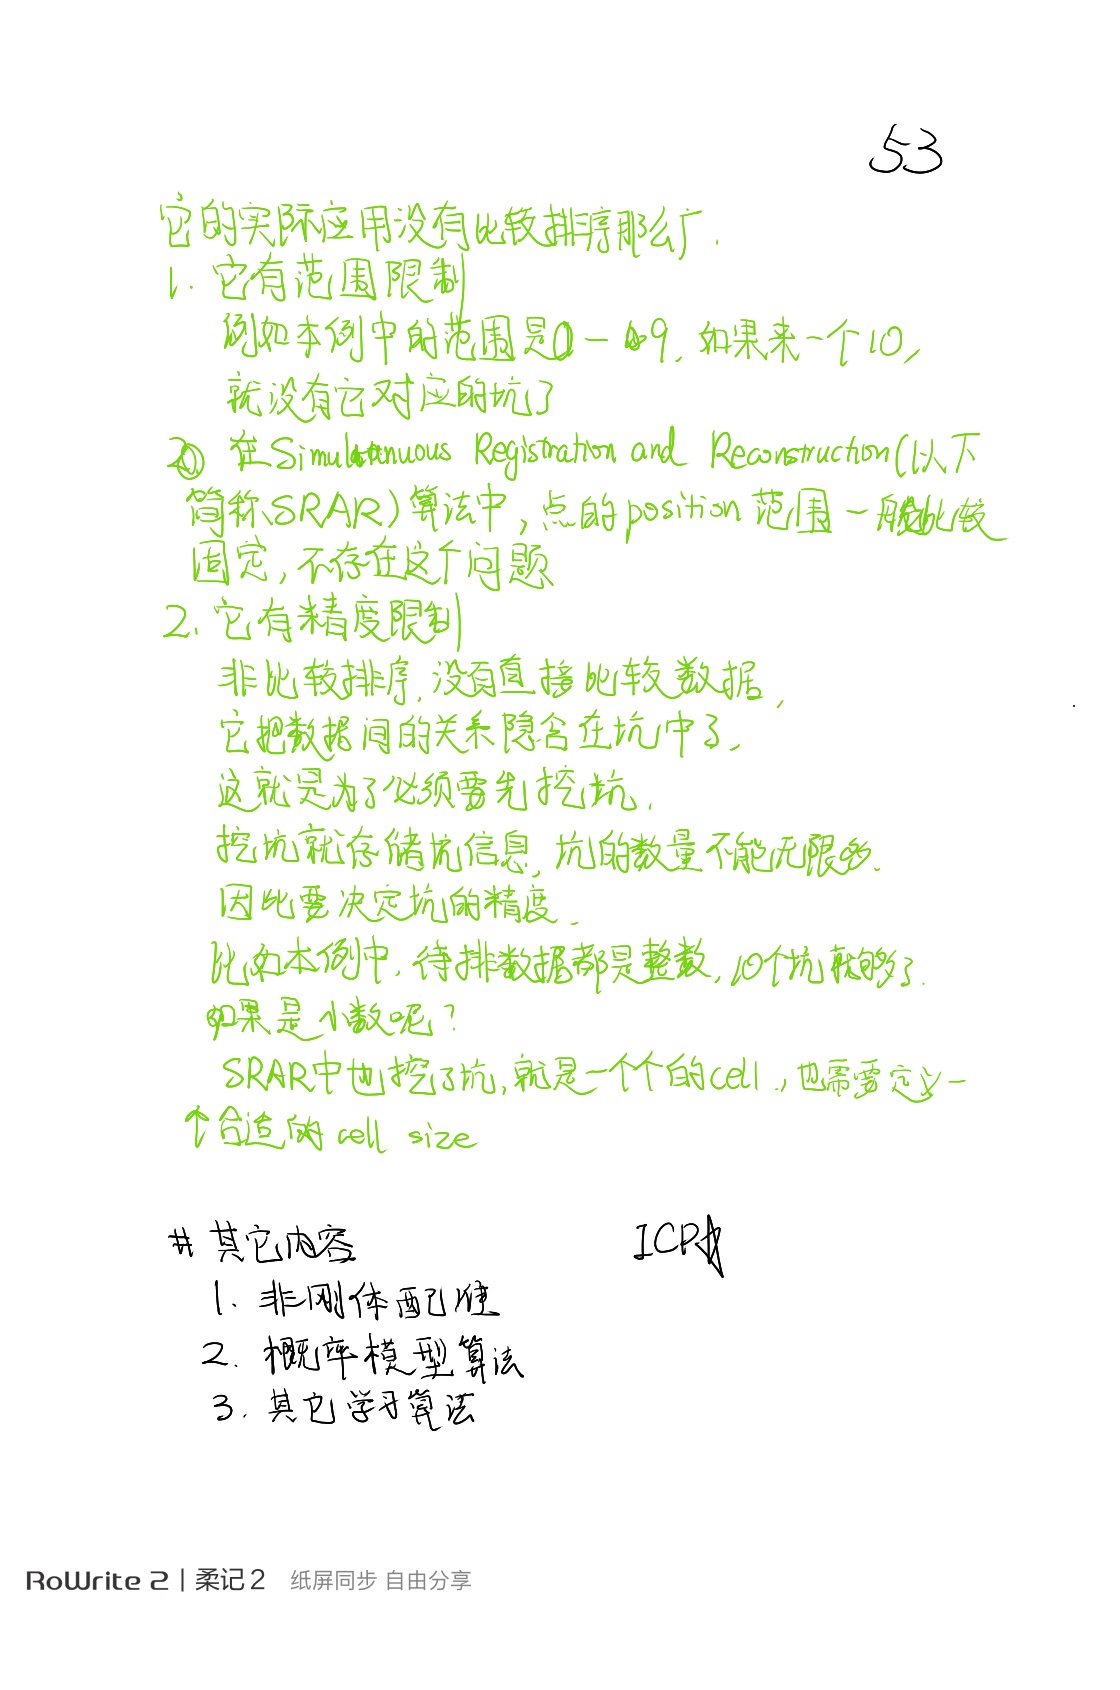 53
它的实际应用没有比较排序那么广.
1. 它有范围限制
例如本例中的范围是0-9, 如果来一个10,
就没有它对应的坑了
② 在Simultanuous Registration and Reconstruction(以下
简称SRAR)算法中,点的position范围一般比较
固定,不存在这个问题
2. 它有精度限制
非比较排序,没有直接比较数据,
它把数据间的关系隐含在坑中了,
这就是为了必须要先挖坑.
挖坑就存储坑信息,坑的数量不能无限多.
因此要决定坑的精度.
比如本例中,待排数据都是整数,10个坑就够了.
如果是小数呢?
SRAR中也挖了坑,就是一个个的cell.,也需要定义一
个合适的cell size
# 其它内容
ICP
1. 非刚体配准
2. 概率模型算法
3. 其它学习算法
RoWrite 2 | 柔记2 纸屏同步 自由分享